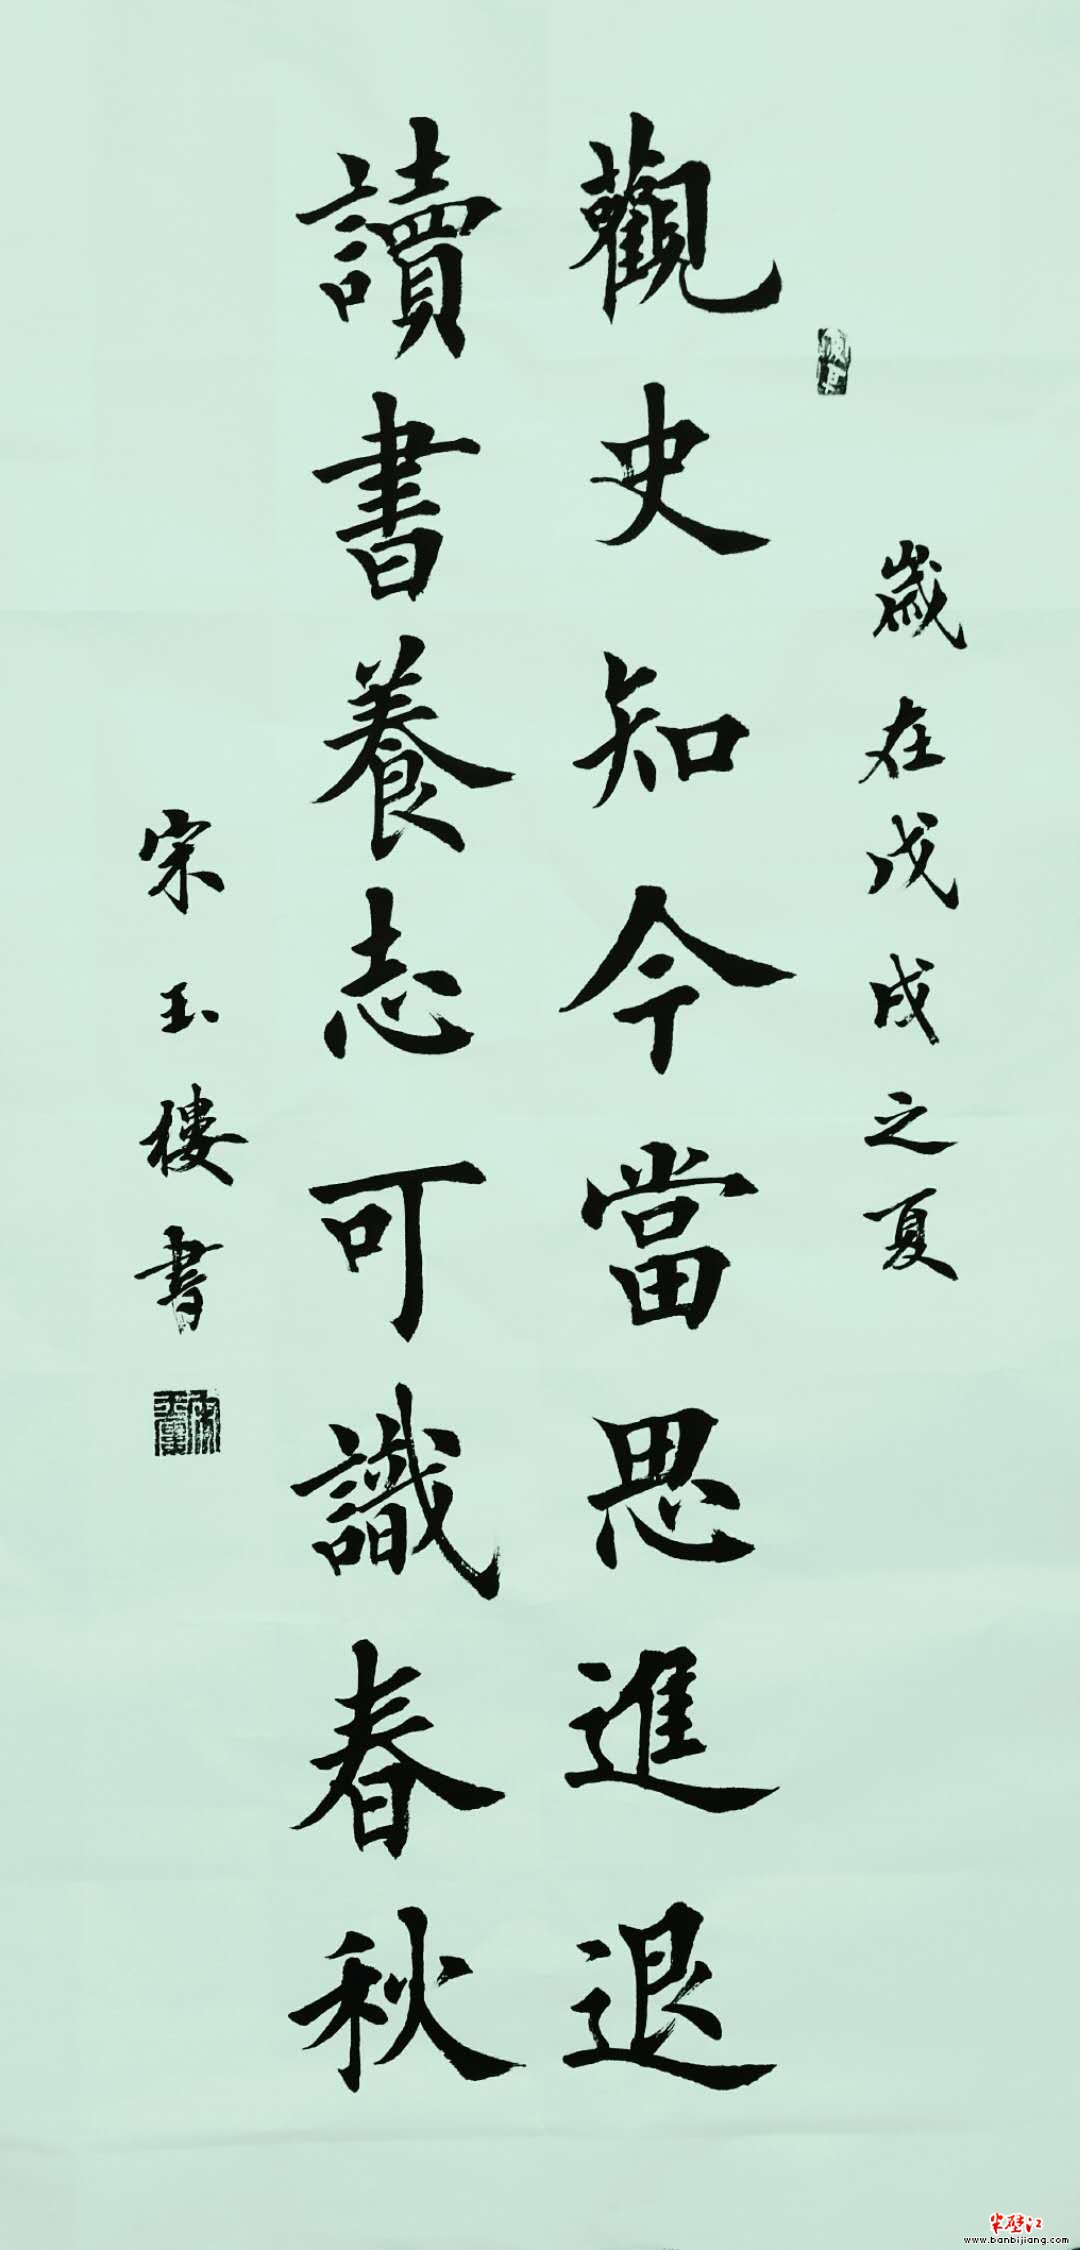 歲在戊戌之夏
觀史知今當思進退
讀書養志可識春秋
宋玉樓書
半壁江
www.banbijiang.com